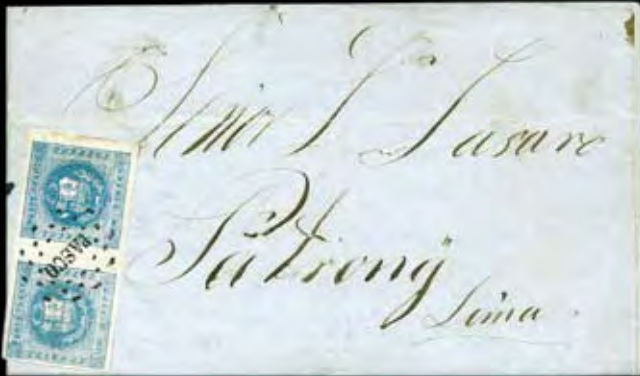 Señor Dn Lasaro
Patrony
Lima
PASCO